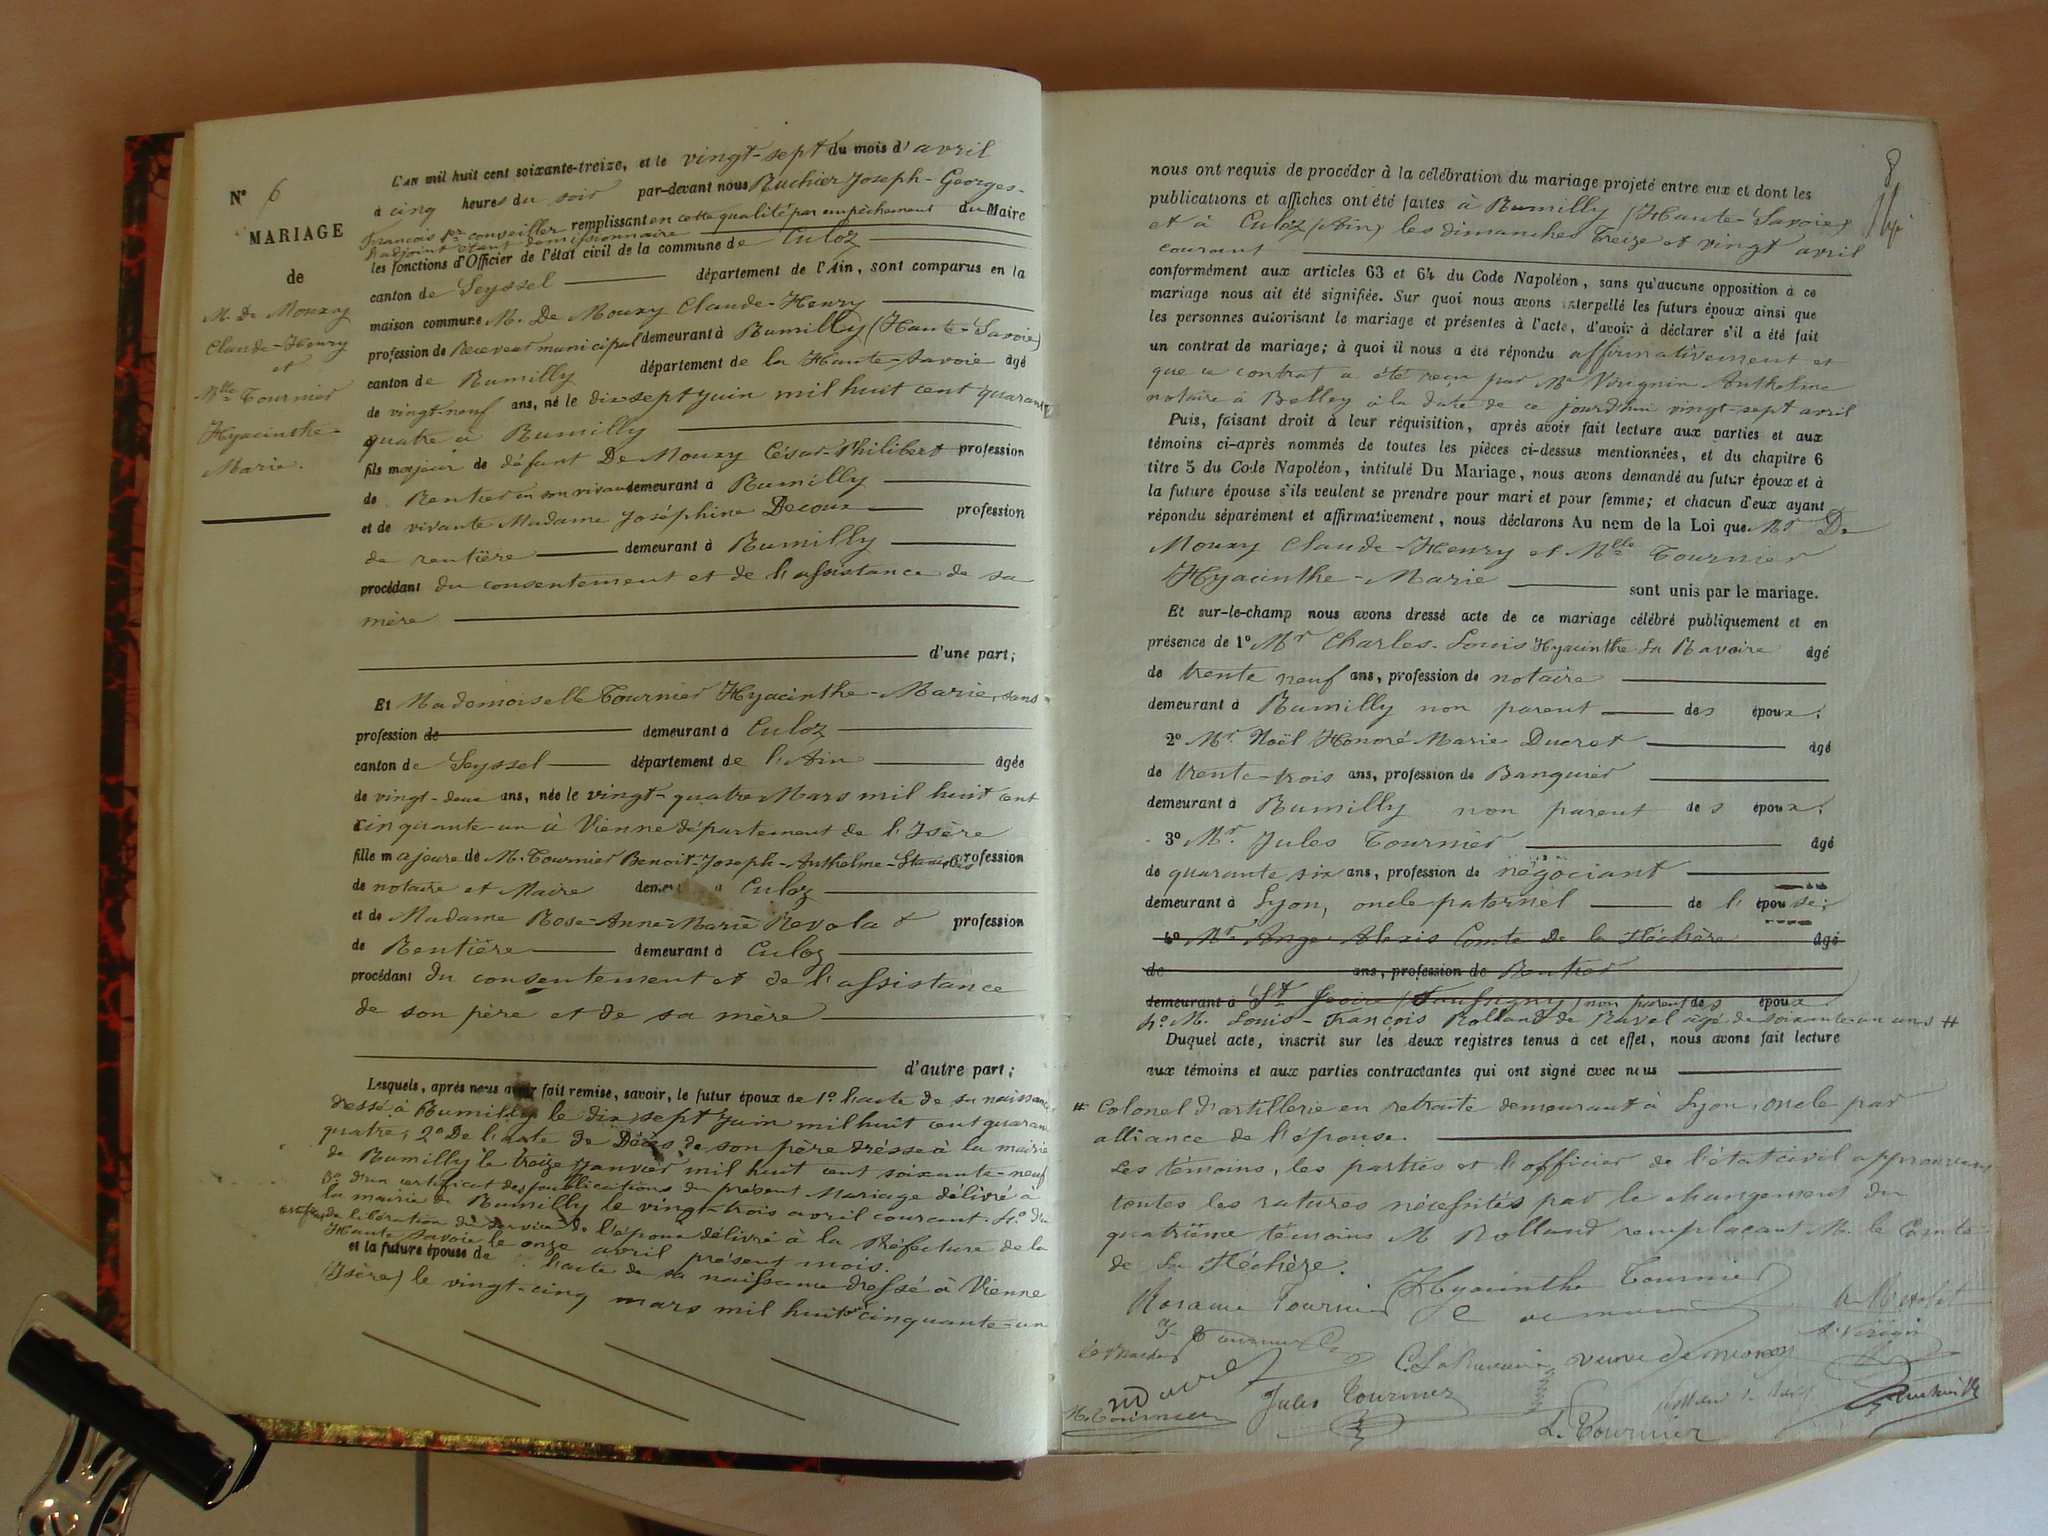 N° 6
MARIAGE
de
M. De Mouxy
Claude-Henry
et
Mlle Tournier
Hyacinthe-
Marie.
L'AN mil huit cent soixante-treize, et le vingt-sept du mois d'avril
à cinq heures du soir par-devant nous Ruchier Joseph-Georges-
François 1er conseiller remplissant en cette qualité par empêchement du Maire
l'adjoint étant démissionnaire
les fonctions d'Officier de l'état civil de la commune de Culoz
canton de Seyssel département de l'Ain, sont comparus en la
maison commune M. De Mouxy Claude-Henry
profession de Receveur municipal demeurant à Rumilly (Haute-Savoie)
canton de Rumilly département de la Haute-Savoie âgé
de vingt-neuf ans, né le dix sept juin mil huit cent quarante
quatre à Rumilly
fils majeur de défunt De Mouxy César-Philibert profession
de Rentier en son vivant demeurant à Rumilly
et de vivante Madame Joséphine Decoux profession
de rentière demeurant à Rumilly
procédant du consentement et de l'assistance de sa
mère
d'une part;
Et Mademoiselle Tournier Hyacinthe-Marie, sans
profession de demeurant à Culoz
canton de Seyssel département de l'Ain âgée
de vingt-deux ans, née le vingt-quatre Mars mil huit cent
cinquante-un à Vienne département de l'Isère
fille majeure de M. Tournier Benoit-Joseph-Anthelme-Stanislas profession
de notaire et Maire demeurant à Culoz
et de Madame Rose-Anne-Marie Revolat profession
de Rentière demeurant à Culoz
procédant du consentement et de l'assistance
de son père et de sa mère
d'autre part;
Lesquels, après nous avoir fait remise, savoir, le futur époux de 1° l'acte de sa naissance
dressé à Rumilly le dix sept juin mil huit cent quarante
quatre; 2° De l'acte de Décès de son père dressé à la mairie
de Rumilly le treize janvier mil huit cent soixante-neuf
3° d'un certificat des publications du présent Mariage délivré à
la mairie de Rumilly le vingt-trois avril courant. 4° d'un
certificat de libération du service de l'époux délivré à la Préfecture de la
Haute Savoie le onze avril présent mois.
et la future épouse de l'acte de sa naissance dressé à Vienne
(Isère) le vingt-cinq mars mil huit cent cinquante-un
8
nous ont requis de procéder à la célébration du mariage projeté entre eux et dont les
publications et affiches ont été faites à Rumilly (Haute-Savoie)
et à Culoz (Ain) les dimanches Treize et vingt avril
courant
conformément aux articles 63 et 64 du Code Napoléon, sans qu'aucune opposition à ce
mariage nous ait été signifiée. Sur quoi nous avons interpellé les futurs époux ainsi que
les personnes autorisant le mariage et présentes à l'acte, d'avoir à déclarer s'il a été fait
un contrat de mariage; à quoi il nous a été répondu affirmativement et
que ce contrat a été reçu par Me Anthelme
notaire à Belley à la date de ce jourd'hui vingt-sept avril
Puis, faisant droit à leur réquisition, après avoir fait lecture aux parties et aux
témoins ci-après nommés de toutes les pièces ci-dessus mentionnées, et du chapitre 6
titre 5 du Code Napoléon, intitulé Du Mariage, nous avons demandé au futur époux et à
la future épouse s'ils veulent se prendre pour mari et pour femme; et chacun d'eux ayant
répondu séparément et affirmativement, nous déclarons Au nom de la Loi que Mr De
Mouxy Claude-Henry et Mlle Tournier
Hyacinthe-Marie sont unis par le mariage.
Et sur-le-champ nous avons dressé acte de ce mariage célébré publiquement et en
présence de 1° Mr Charles-Louis Hyacinthe La Ravoire âgé
de trente neuf ans, profession de notaire
demeurant à Rumilly non parent des époux;
2° Mr. Noël Honoré Marie Ducret âgé
de trente-trois ans, profession de Banquier
demeurant à Rumilly non parent des époux;
3° Mr. Jules Tournier âgé
de quarante six ans, profession de négociant
demeurant à Lyon, oncle paternel de l'épouse;
4° Mr. Ange Alexis Comte De la Fléchère âgé
de ans, profession de Rentier
demeurant à St Jeoire (Faussigny) non parent des époux
4° M. Louis-François Rolland de Ravel âgé de soixante-un ans #
Duquel acte, inscrit sur les deux registres tenus à cet effet, nous avons fait lecture
aux témoins et aux parties contractantes qui ont signé avec nous
# Colonel d'artillerie en retraite demeurant à Lyon, oncle par
alliance de l'épouse.
Les témoins, les parties et l'officier de l'état civil approuvent
toutes les ratures nécessités par le changement du
quatrième témoins M Rolland remplaçant M. le Comte
de La Fléchère.
Rosanie Tournier Hyacinthe Tournier
C. LaRavoire veuve de mouxy
Jules Tournier
L. Tournier